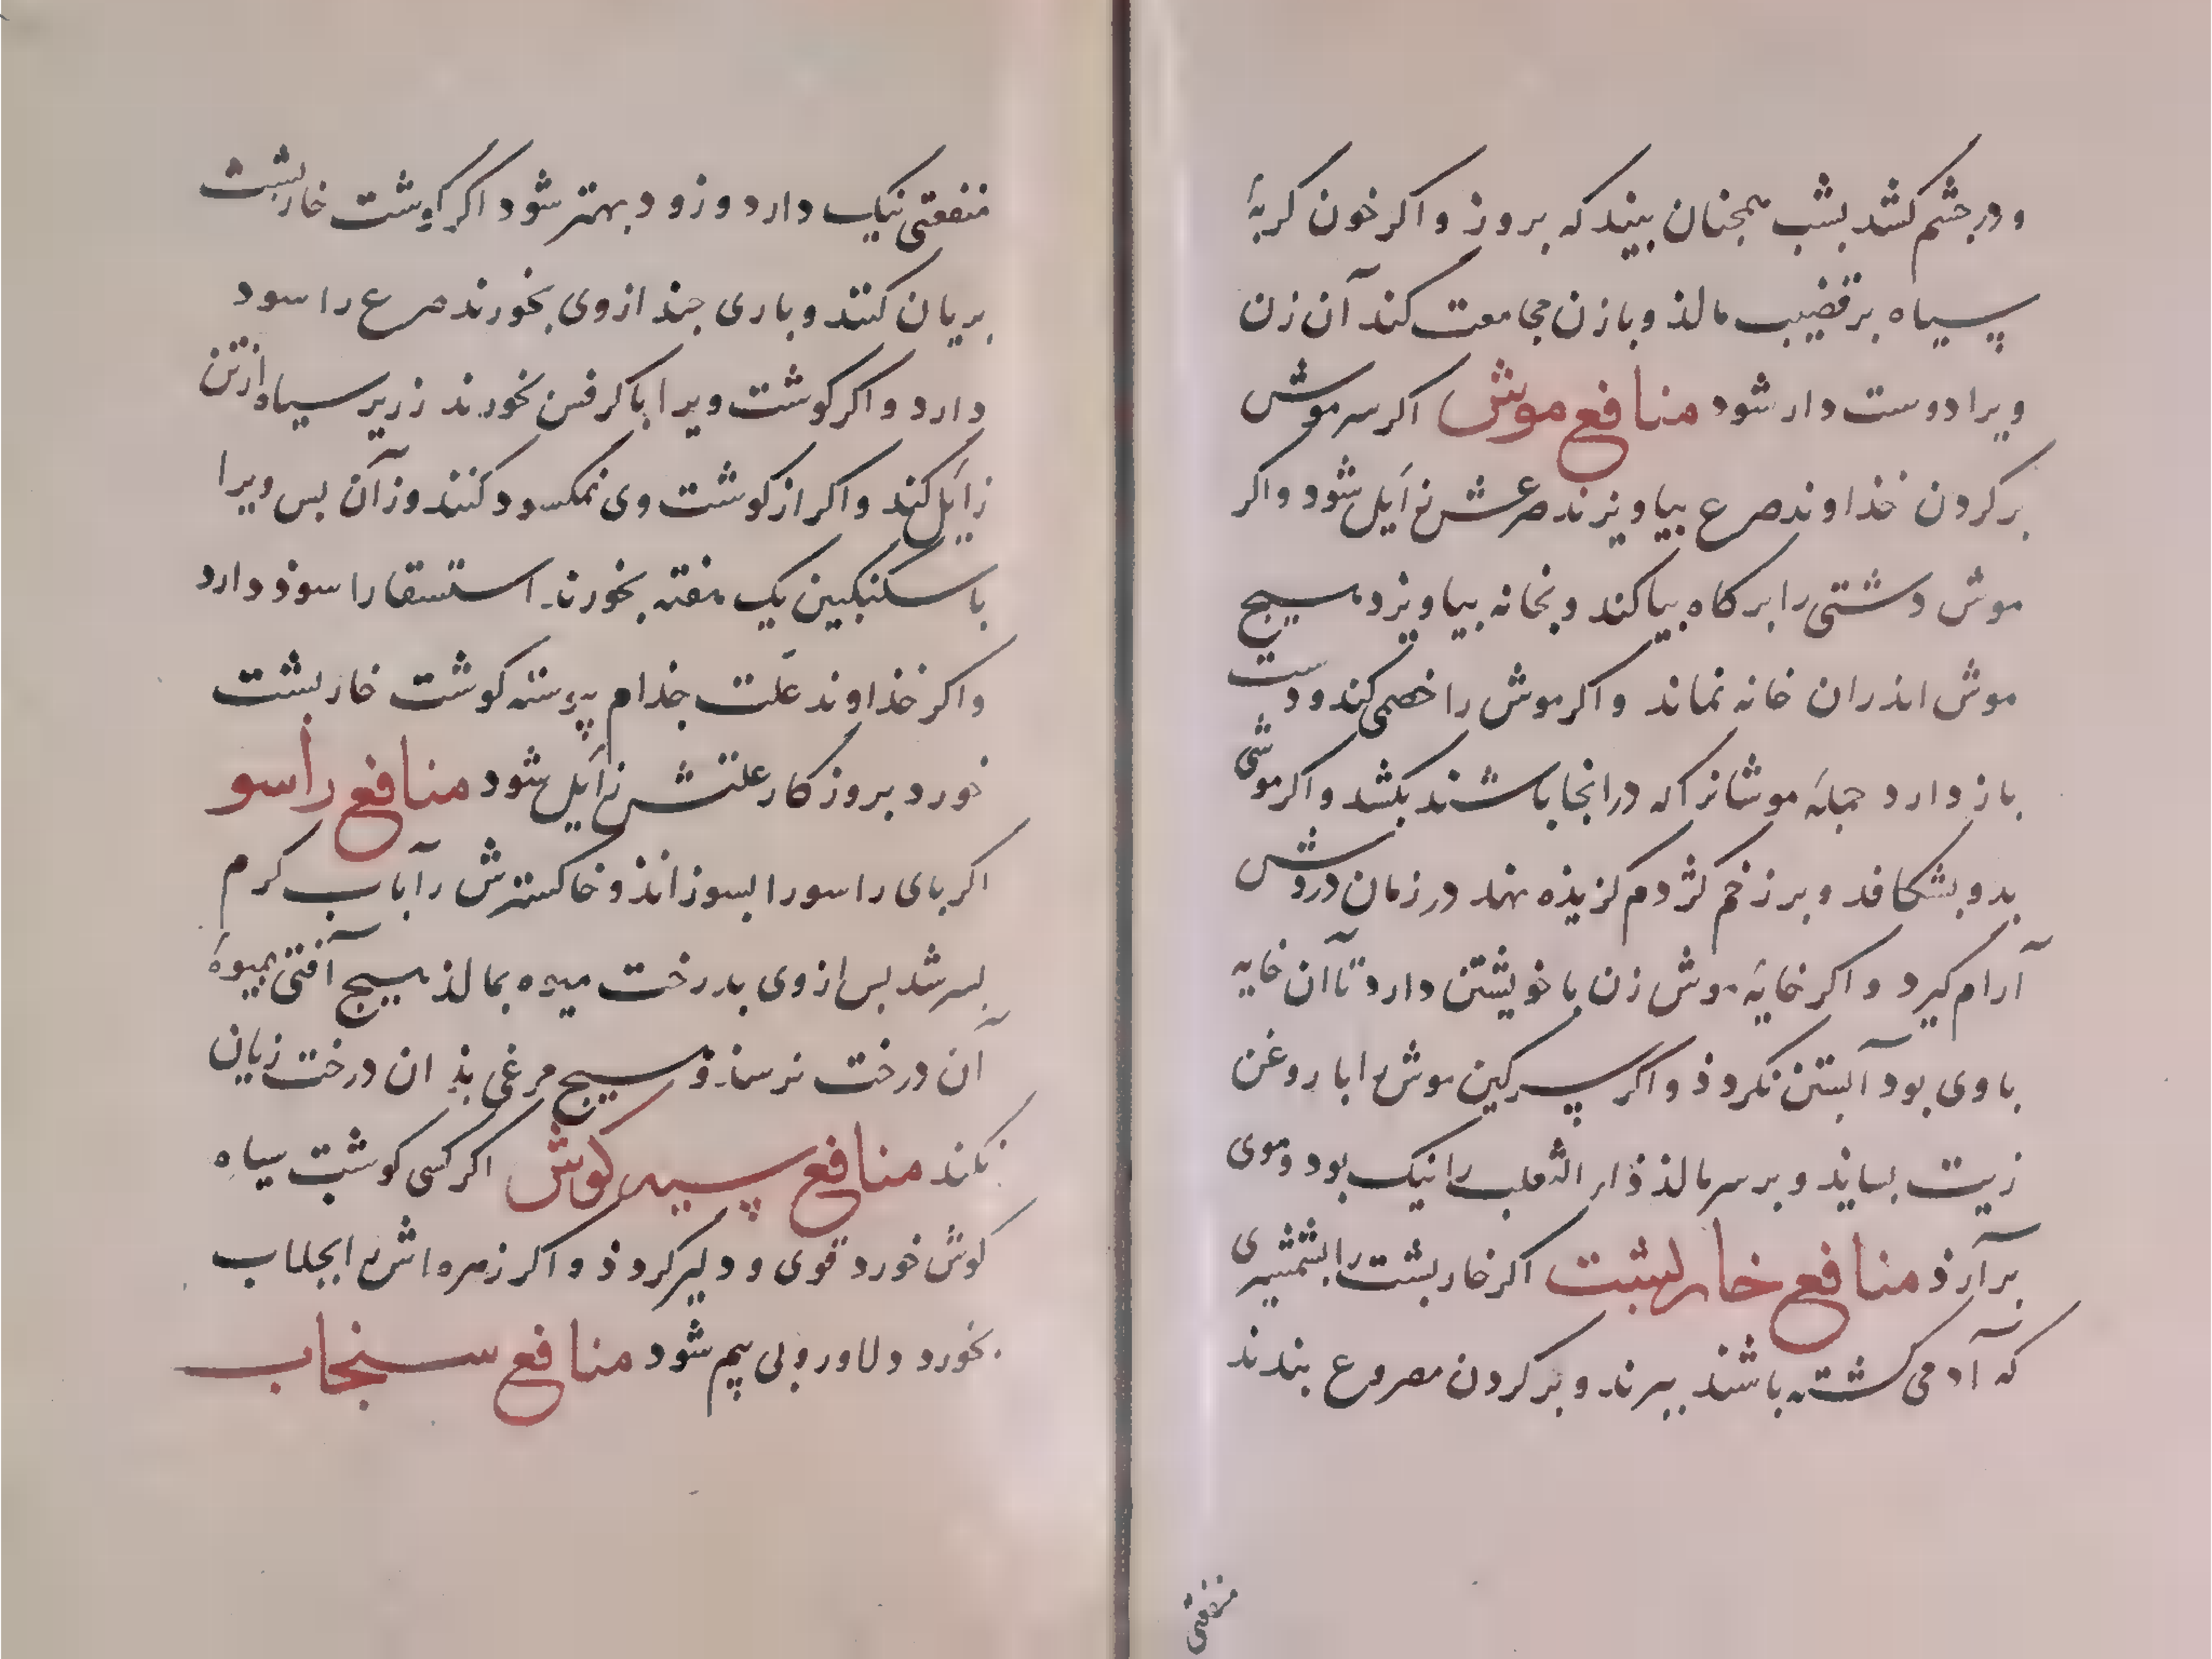 و در جشم کشد بشب همجنان بیند که بروز و اکر خون کربهٔ
سپیاه برقضیب مالذ و با زن مجامعت کند آن زن
ویرا دوست دار شود منافع موش اکر سر موش
بر کردن خذاوند صرع بیاویزند صرعش زایل شود و اکر
موش دشتی را بر کاه بیاکند و بخانه بیاویزد هیسج
موش اندران خانه نماند و اکر موش را خصی کند و دست
باز دارد جملهٔ موشانرا که در انجا باشند بکشد و اکر موشی
بدو بشکافد و بر زخم کژدم کزیذه نهد در زمان دردش
آرام کیرد و اکر خایهٔ موش زن با خویشتن دارد تا آن خایه
با وی بود آبستن نکردذ و اکر سپرکین موش را با روغن
زیت بساید و بر سر مالذ ذار الثعلب را نیک بود و موی
برآرذ منافع خاربشت اکر خاربشت را بشمشیری
که آدمی کشته باشند ببرند و بر کردن مصروع بندند
منفعتی
منفعتی نیک دارد و زود بهتر شود اکر کوشت خاربشت
بریان کنند و باری جند از وی بخورند صرع را سود
دارد و اکر کوشت ویرا با کرفس بخورند زریر سیاه از تن
زایل کند و اکر از کوشت وی نمکسود کنند وز آن بس ویرا
با سکنبکبین یک هفته بخورند استسقا را سوذ دارد
و اکر خذاوند علت جذام پیوسته کوشت خاربشت
خورد بروزکار علتش زایل شود منافع راسو
اکر بای راسو را بسوزانذ و خاکسترش را بآب کرم
بسرشد بس از وی بدرخت میوه بمالذ هیسج آفتی بمیوهٔ
آن درخت نرسذ و هیسج مرغی بذ ان درخت زیان
نکند منافع سپیه کوش اکر کسی کوشت سیاه
کوش خورد قوی و دلیر کردذ و اکر زهره اش را بجلاب
بخورد دلاور و بی بیم شود منافع سنجاب